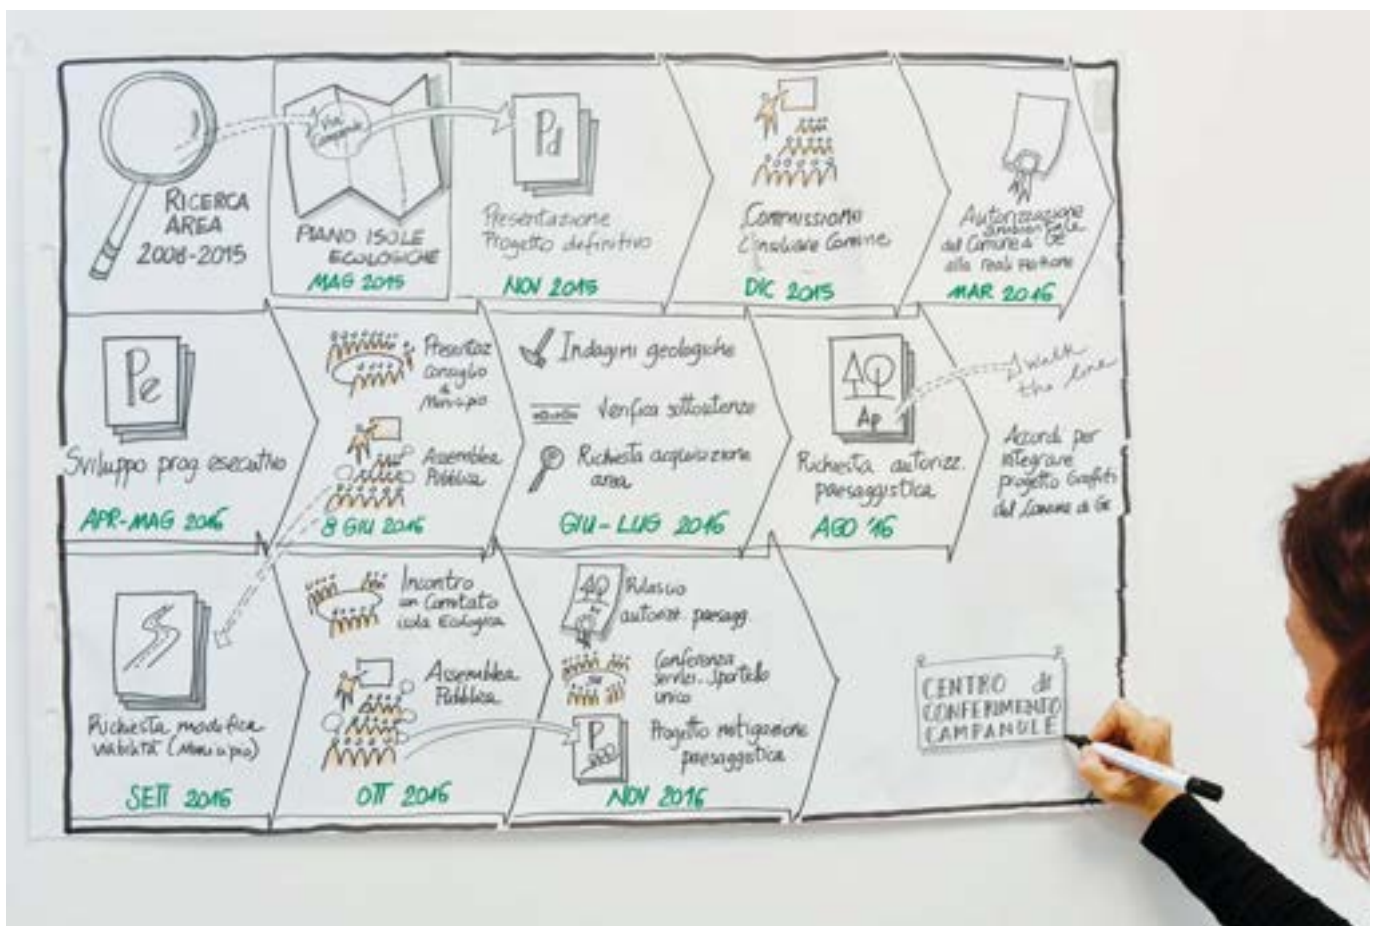 RICERCA
AREA
2008-2015
PIANO ISOLE
ECOLOGICHE
MAG 2015
Pd
Presentazione
Progetto definitivo
NOV 2015
Commissione
Consiliare Comune
DIC 2015
Autorizzazione
ambientale
del Comune di GE
alla
MAR 2016
Pe
Sviluppo prog esecutivo
APR-MAG 2016
Presentaz
Consiglio
di
Municipio
Assemblea
Pubblica
8 GIU 2016
Indagini geologiche
Verifica sottoutenze
Richiesta acquisizione
area
GIU-LUG 2016
Ap
Richiesta autorizz.
paesaggistica
AGO '16
Walk
the line
Accordi per
integrare
progetto Graffiti
del Comune di GE
Richiesta modifica
viabilità (Municipio)
SETT 2016
Incontro
con Comitato
isola Ecologica
Assemblea
Pubblica
OTT 2016
Rilascio
autorizz. paesagg.
Conferenza
servizi. Sportello
unico
P
Progetto mitigazione
paesaggistica
NOV 2016
CENTRO di
CONFERIMENTO
CAMPANULE